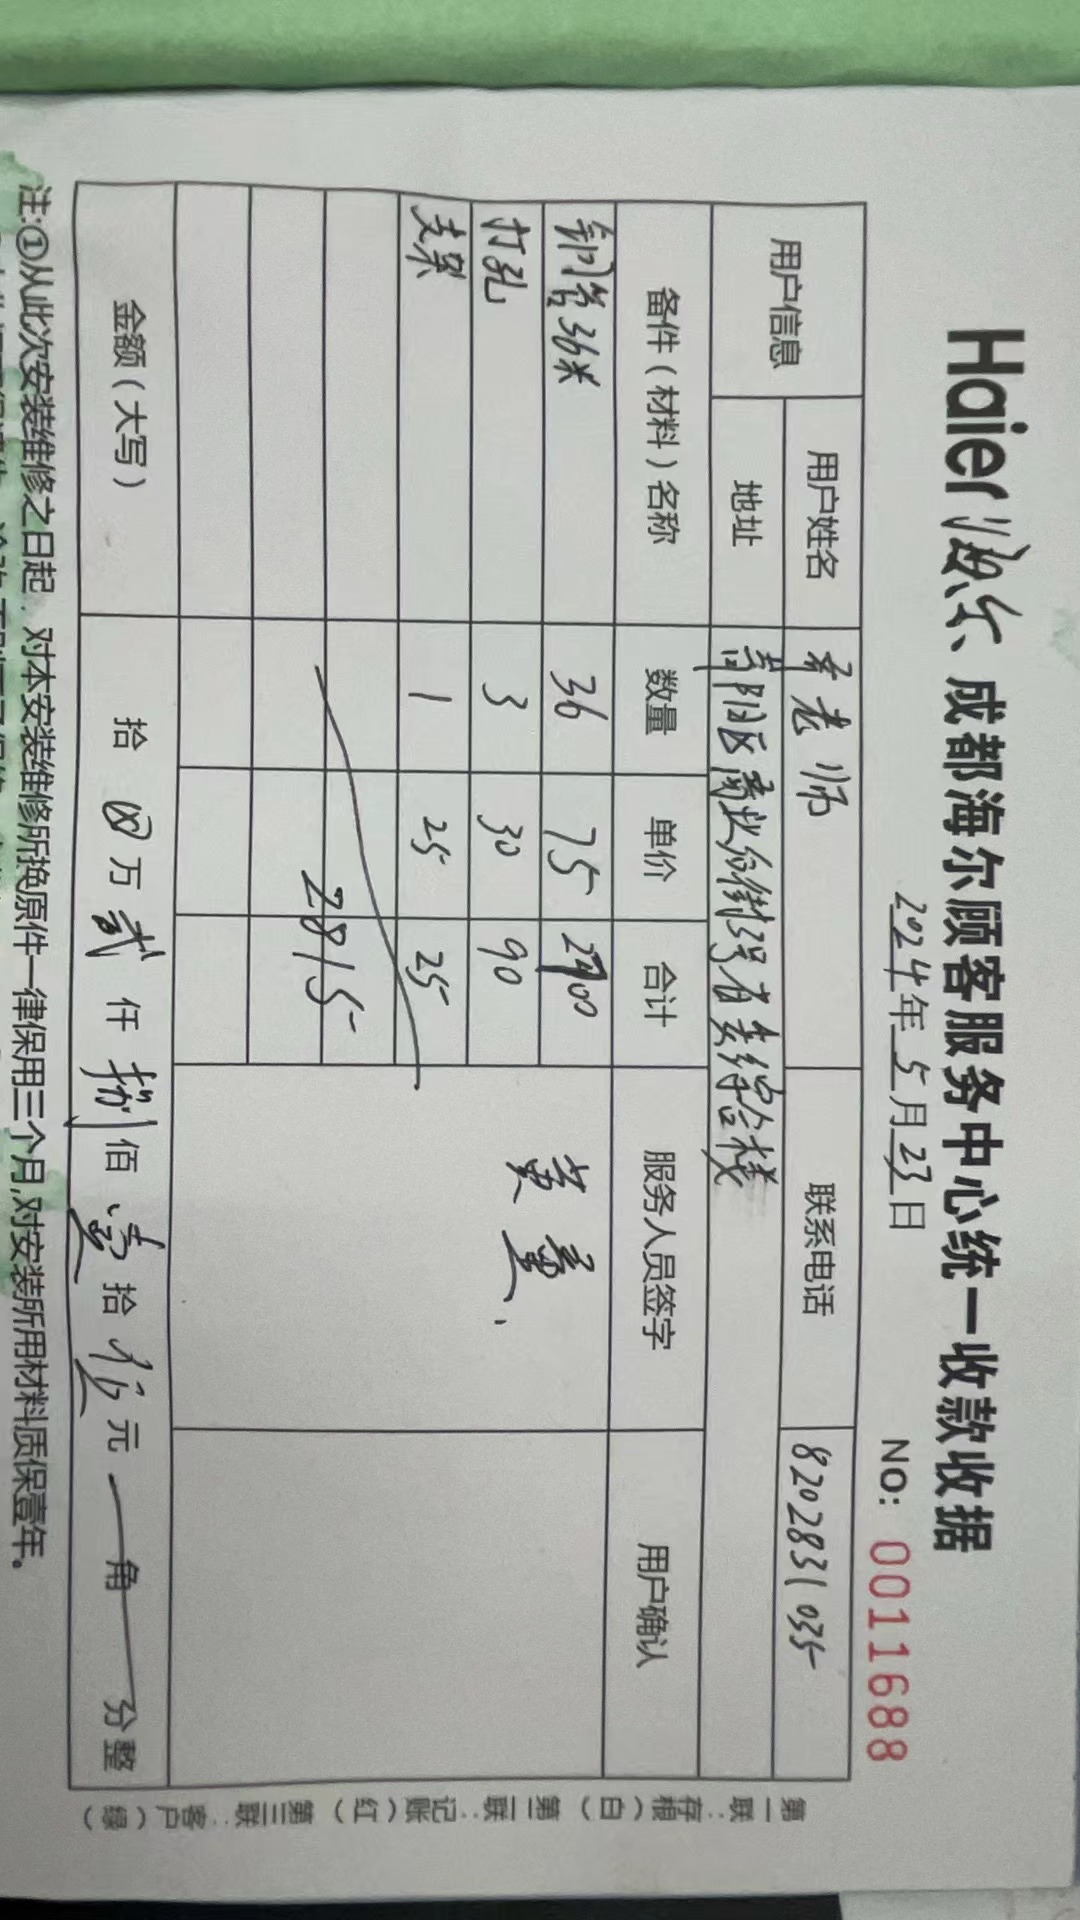 Haier 海尔 成都海尔顾客服务中心统一收款收据
2024年5月23日 NO: 0011688
用户信息 用户姓名 李老师 联系电话 8202831035
地址 青阳区商业街 综合楼
备件（材料）名称 数量 单价 合计 服务人员签字 用户确认
铜管36米 36 75 2700
打孔 3 30 90
支架 1 25 25
黄
2815
金额（大写） 拾 万 贰 仟 捌 佰 壹 拾 伍 元 角 分整
注:①从此次安装维修之日起，对本安装维修所换原件一律保用三个月,对安装所用材料质保壹年。
第一联:存根（白） 第二联:记账（红） 第三联:客户（绿）